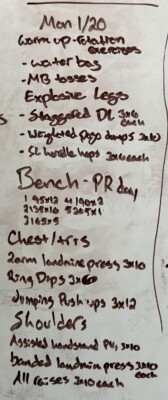 Mon 1/20
Warm up - Rotation
exercises
- water bag
- MB tosses
Explosive Legs
- Staggered DL 3x6
each
- Weighted Pogo Jumps 3x10
- SL hurdle hops 3x6 each
Bench - PR day
1 95x12 4 190x2
2 135x10 5 205x1
3 165x5
Chest/Arms
2arm landmine press 3x10
Ring Dips 3x6
Jumping Push ups 3x12
Shoulders
Assisted handstand PU, 3x10
banded landmine press 3x10
each
All raises 3x10 each